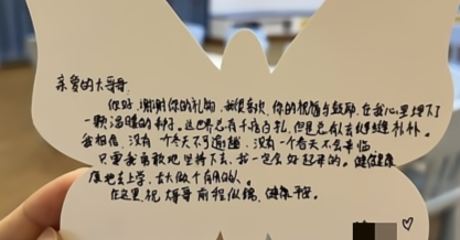 亲爱的大哥哥
你好,谢谢你的礼物,我很喜欢,你的祝福与鼓励,在我心里埋下了
一颗温暖的种子。这世界总有千疮百孔,但是总有人去缝缝补补。
我相信,没有一个冬天不可逾越,没有一个春天不会来临。
只要我勇敢地坚持下去,我一定会好起来的。健健康
康地去上学,去做个有用的人。
在这里,祝 大哥哥 前程似锦,健康平安。